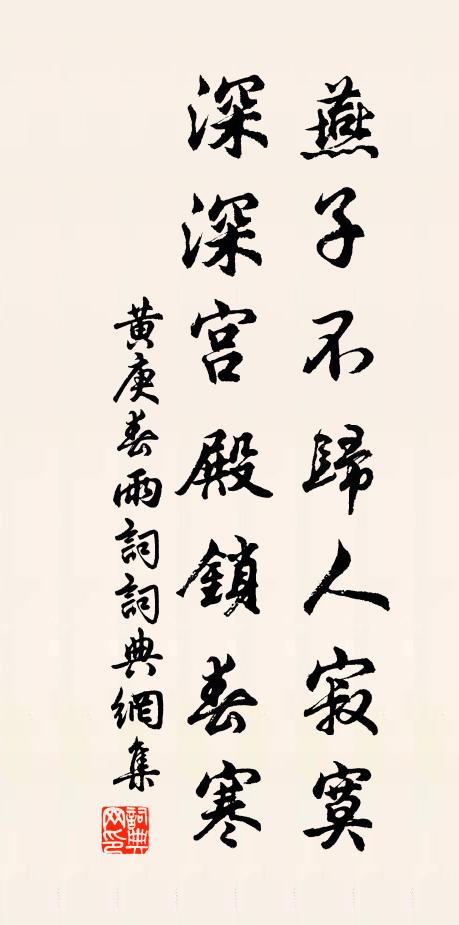 燕子不歸人寂寞
深深宮殿鎖春寒
黃庚春雨詞詞典網集
詞典
网印